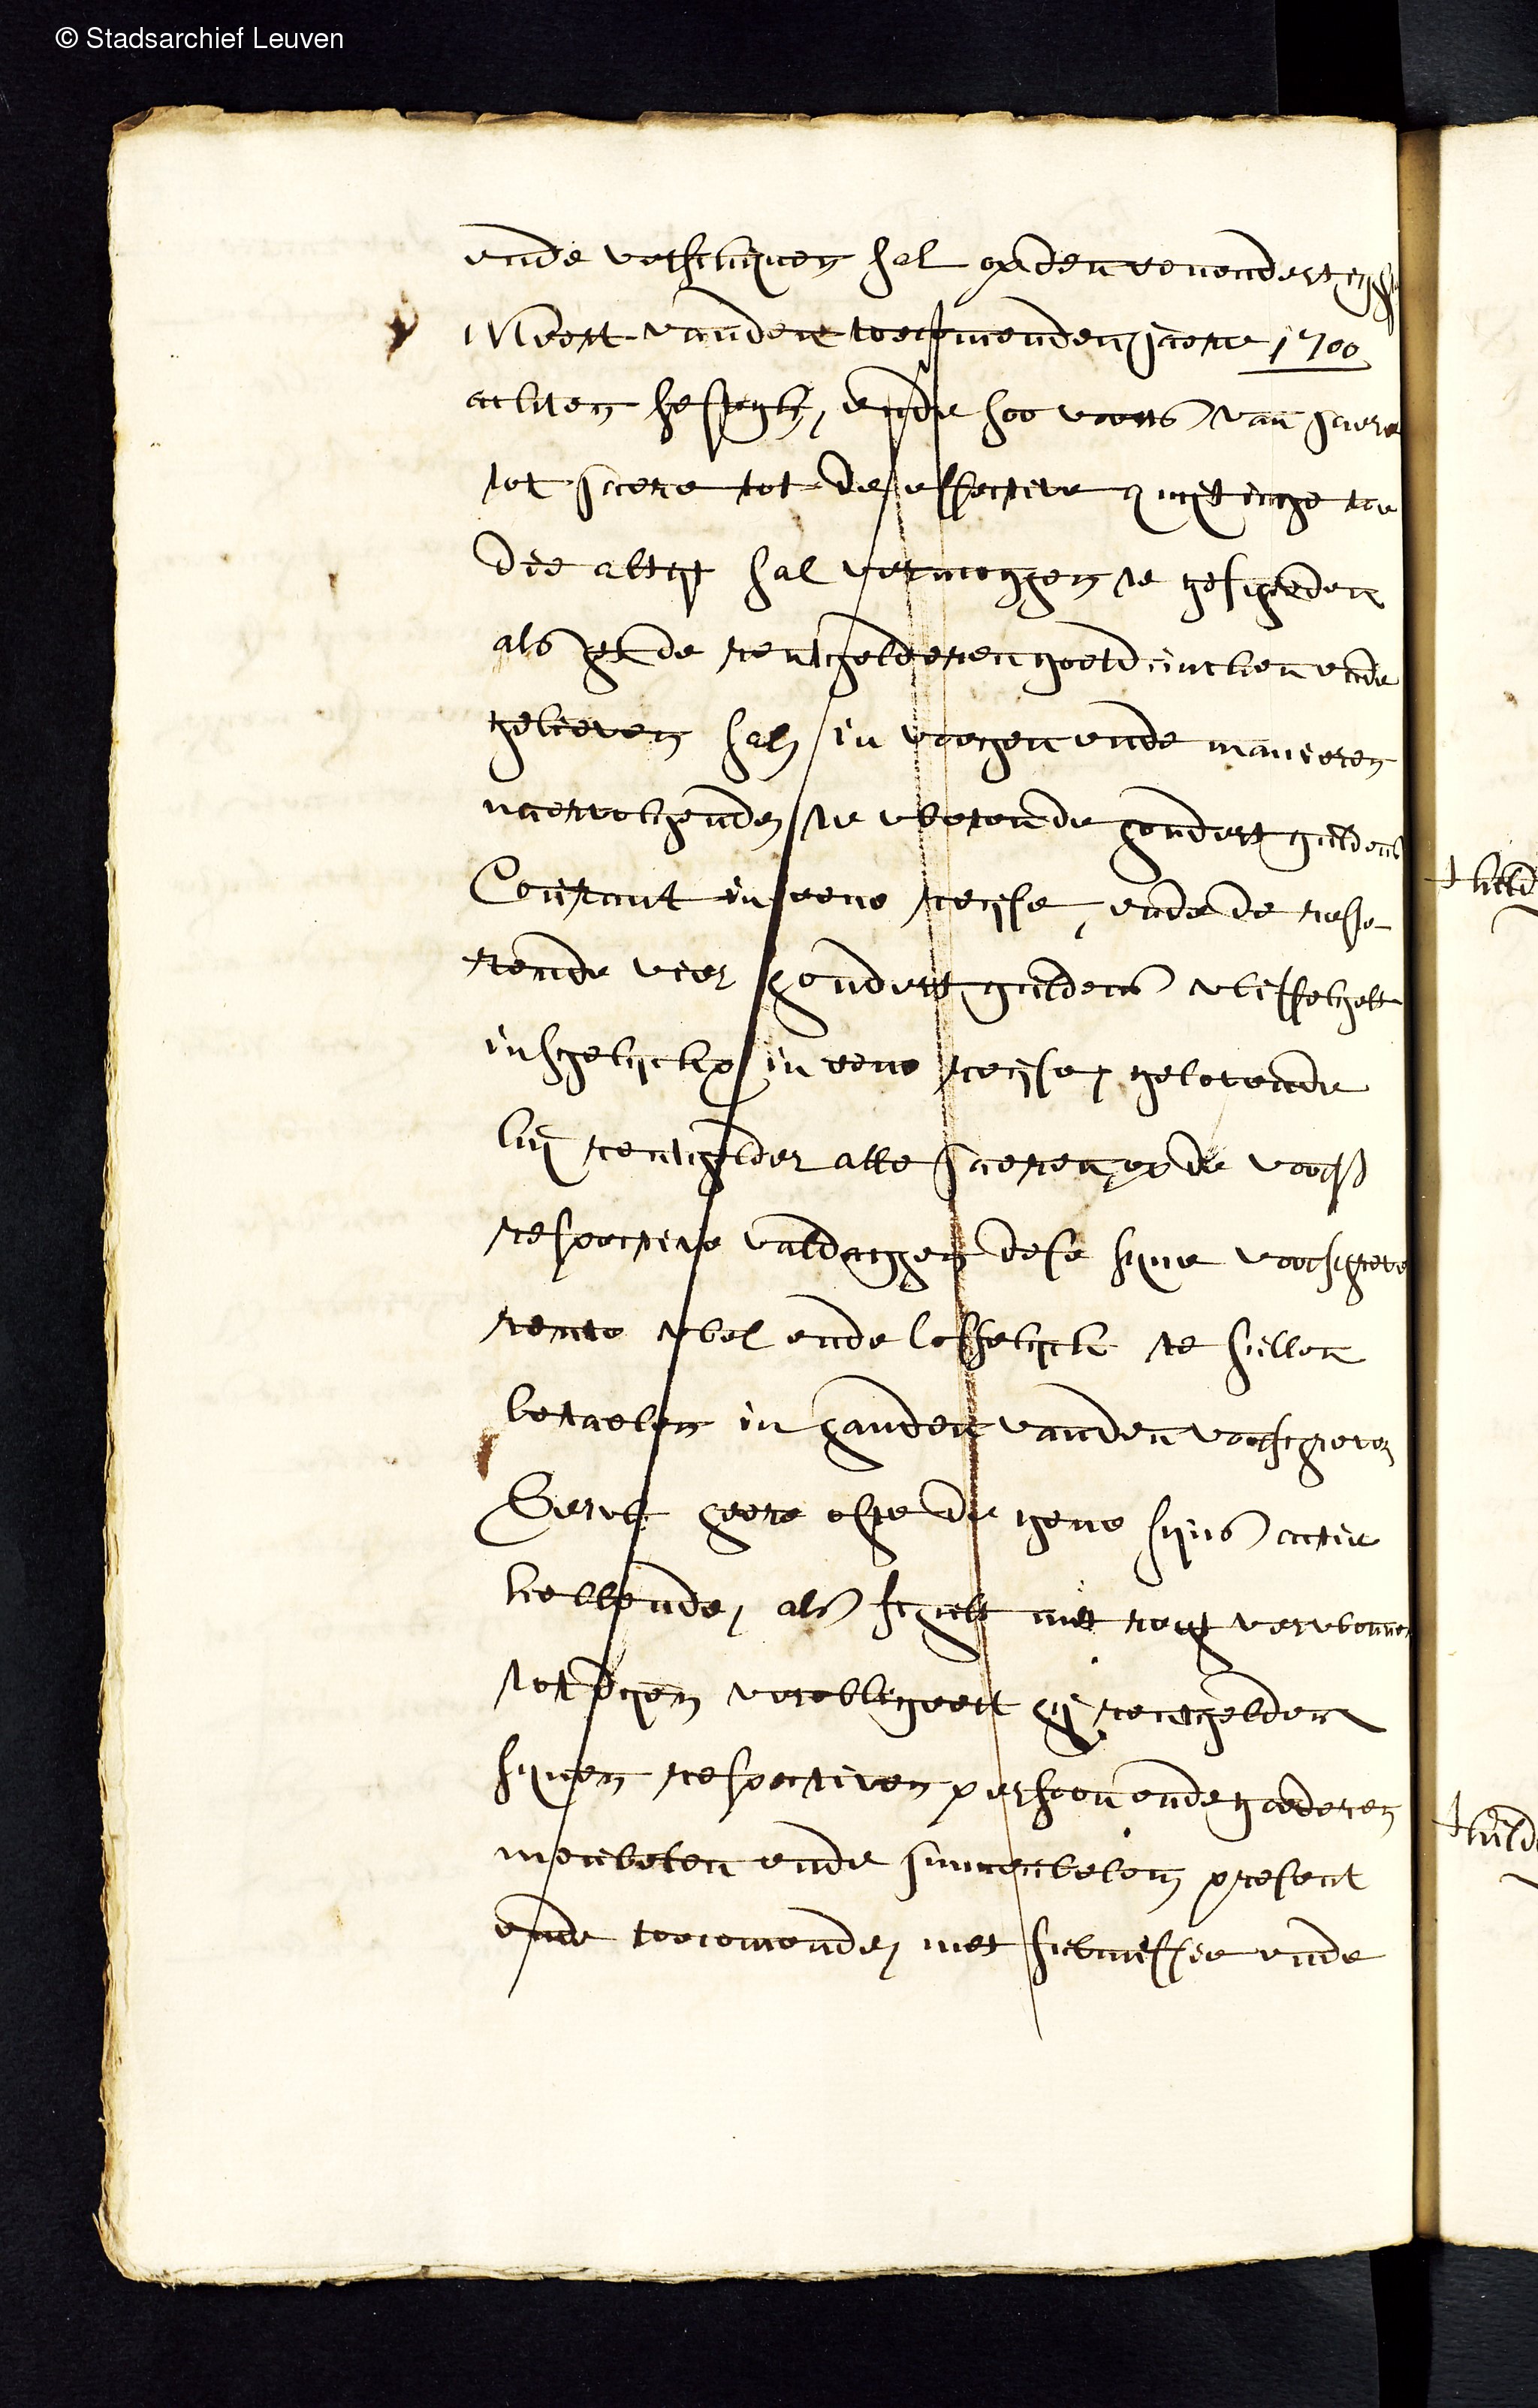 © Stadsarchief Leuven
ende verschijnen sal op den eenendertichste
Meert vanden toecomenden jaere 1700
achten sestych, ende soo voorts van jaere
tot jaere tot de effective quytinge toe
die altyt sal vermoghen te geschieden
als het de rentgelderen goetduncken ende
gelieven sal, in voegen ende manieren
naervolgende, te wetende hondert guldens
Courant in eene reyse, ende de reste-
rende vier hondert guldens wisselgelt
insgelyckx in eene reyse, gelovende
hij rentgelder alle jaeren op de voors
respective valdaegen dese syne voorschreve
rente wel ende loffelyck te sullen
betaelen in handen vanden voorschreven
heere ofte de gene syns actie
hebbende, als schult met recht verwonnen
tot dyen verobligeert hij rentgelder
synen respectiven persoon ende goederen
meubelen ende immeubelen present
ende toecomende, met submissie ende